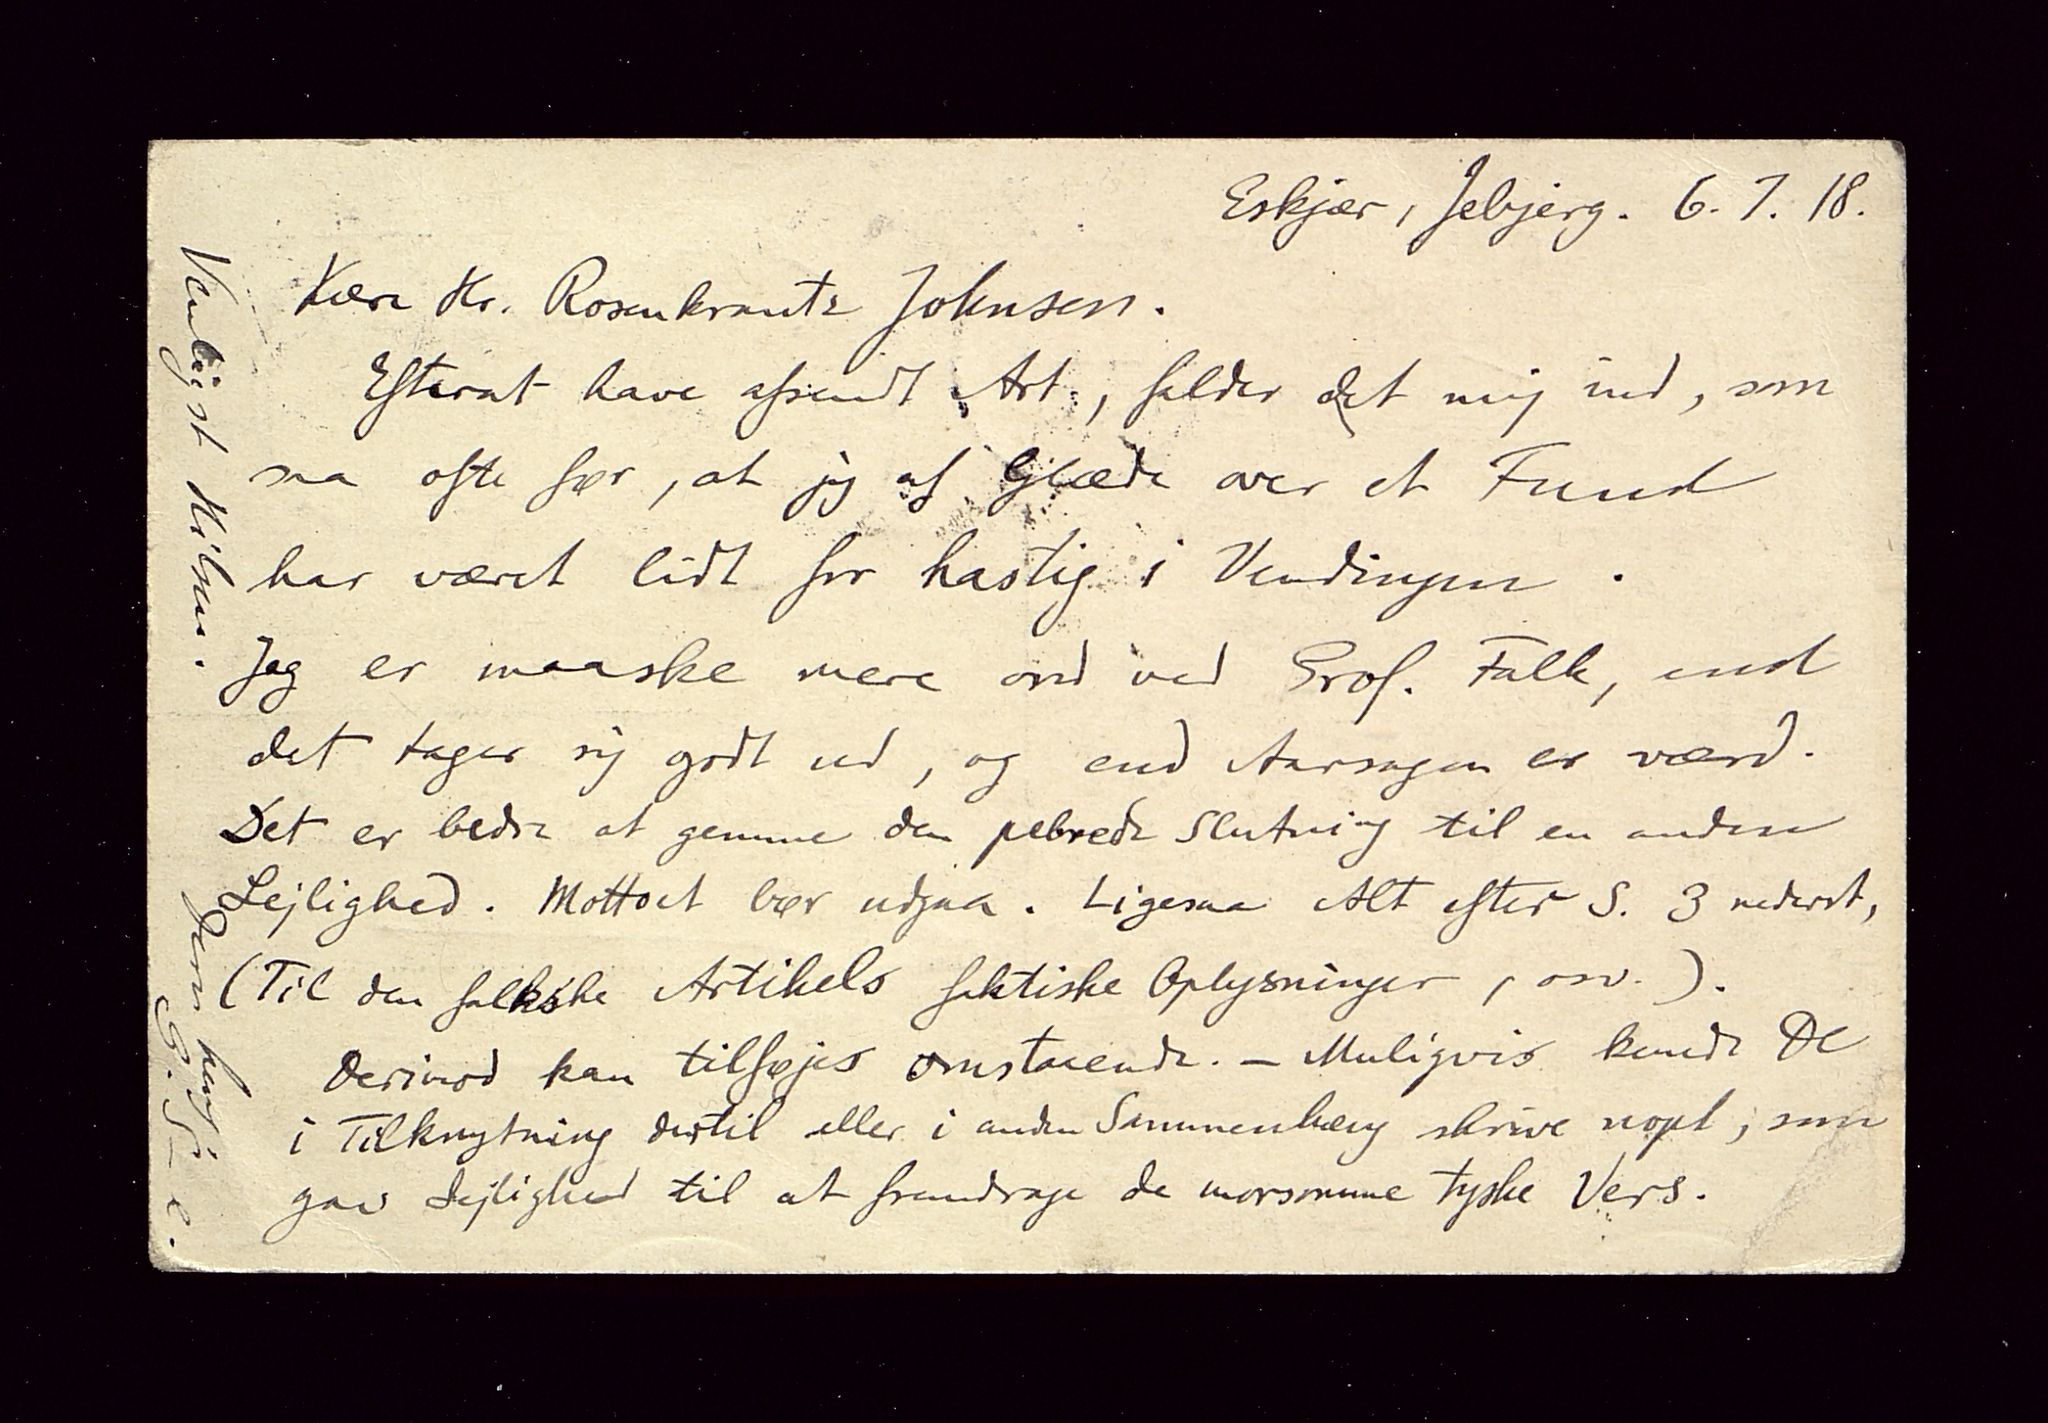 Eskjær, Jebjerg. 6. 7. 18.
Kære Hr. Rosenkrantz Johnsen.
Efterat have afsendt Art., falder det mig ind, som
saa ofte før, at jeg af Glæde over et Fund
har været lidt for hastig i Vendingen.
Jeg er maaske mere ond ved Prof. Falk, end
det tager sig godt ud, og end Aarsagen er værd.
Det er bedre at gemme den pebrede Slutning til en anden
Lejlighed. Mottoet bør udgaa. Ligesaa Alt efter S. 3 nederst,
(Til den falkske Artikels faktiske Oplysninger, osv.).
Derimod kan tilføjes omstaaende. – Muligvis kunde De
i Tilknytning dertil eller i anden Sammenhæng skrive noget, som
gav Lejlighed til at fremdrage de morsomme tyske Vers.
Venligst Hilsen.
Deres heng.